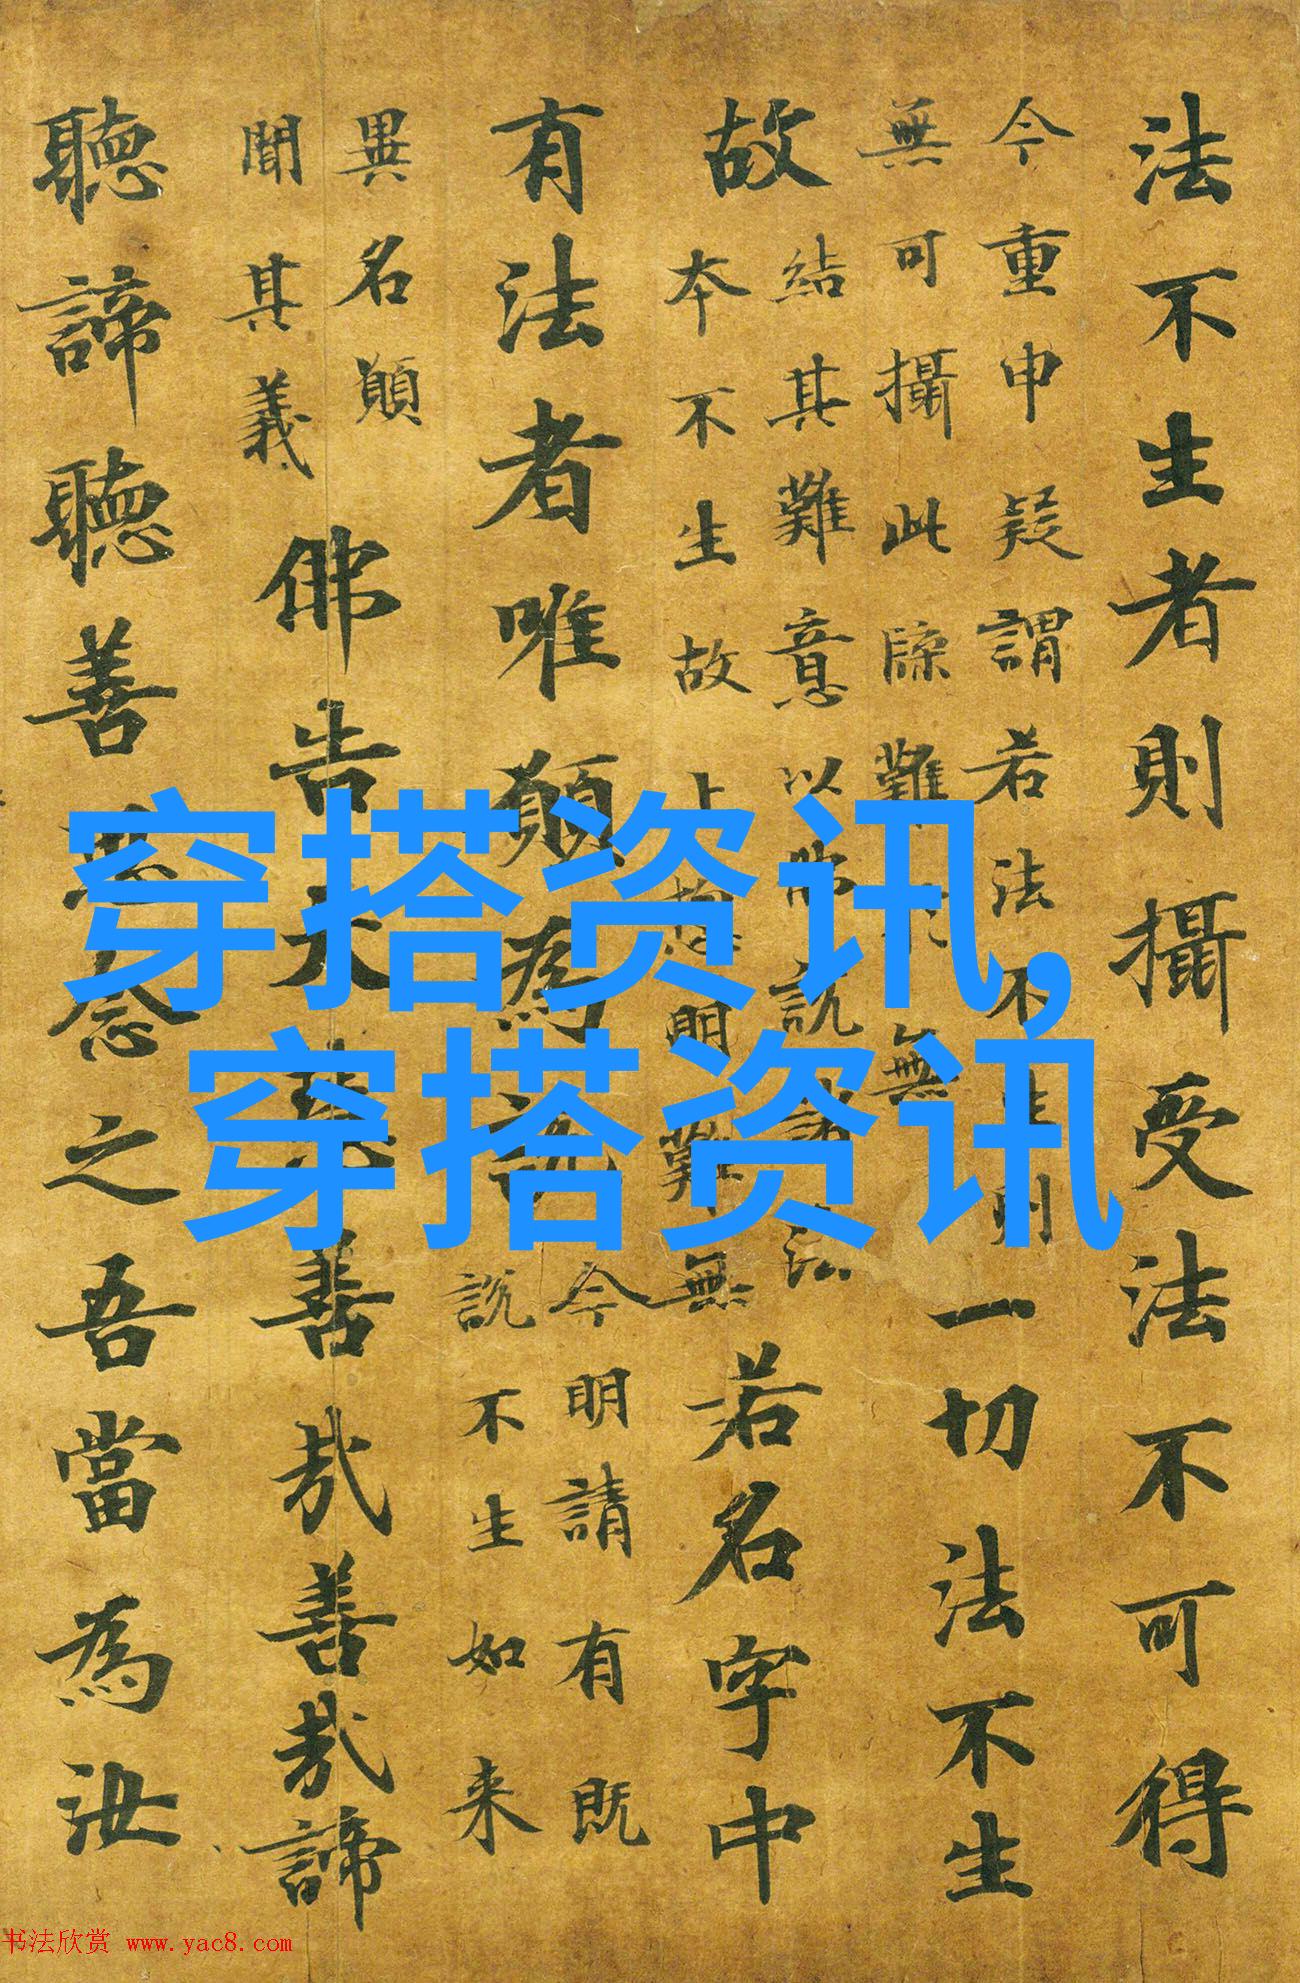 法不生者則攝受法不可得
今重申疑謂若法不生則
無可攝此牒難無
一切法不生
故
結其難意以佛說諸法
本不生故明難無
若名字中
有法者唯願為說
今明請有既
說不生如来
異名願
聞其義
佛告大慧善哉善哉諦
聽諦聽善思念之吾當為汝
穿搭资讯,
穿搭资讯
书法欣赏 www.yac8.com